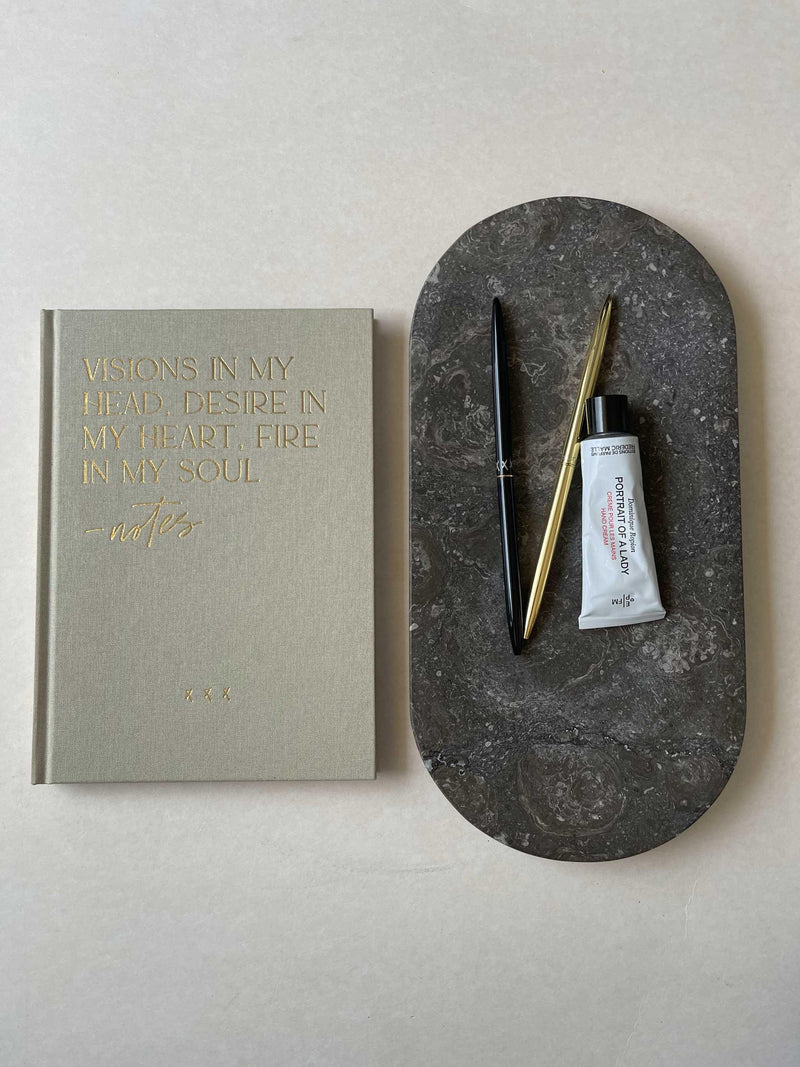 VISIONS IN MY
HEAD, DESIRE IN
MY HEART, FIRE
IN MY SOUL
-notes
x x x
EDITIONS DE PARFUMS
FREDERIC MALLE
Dominique Ropion
PORTRAIT OF A LADY
CREME POUR LES MAINS
HAND CREAM